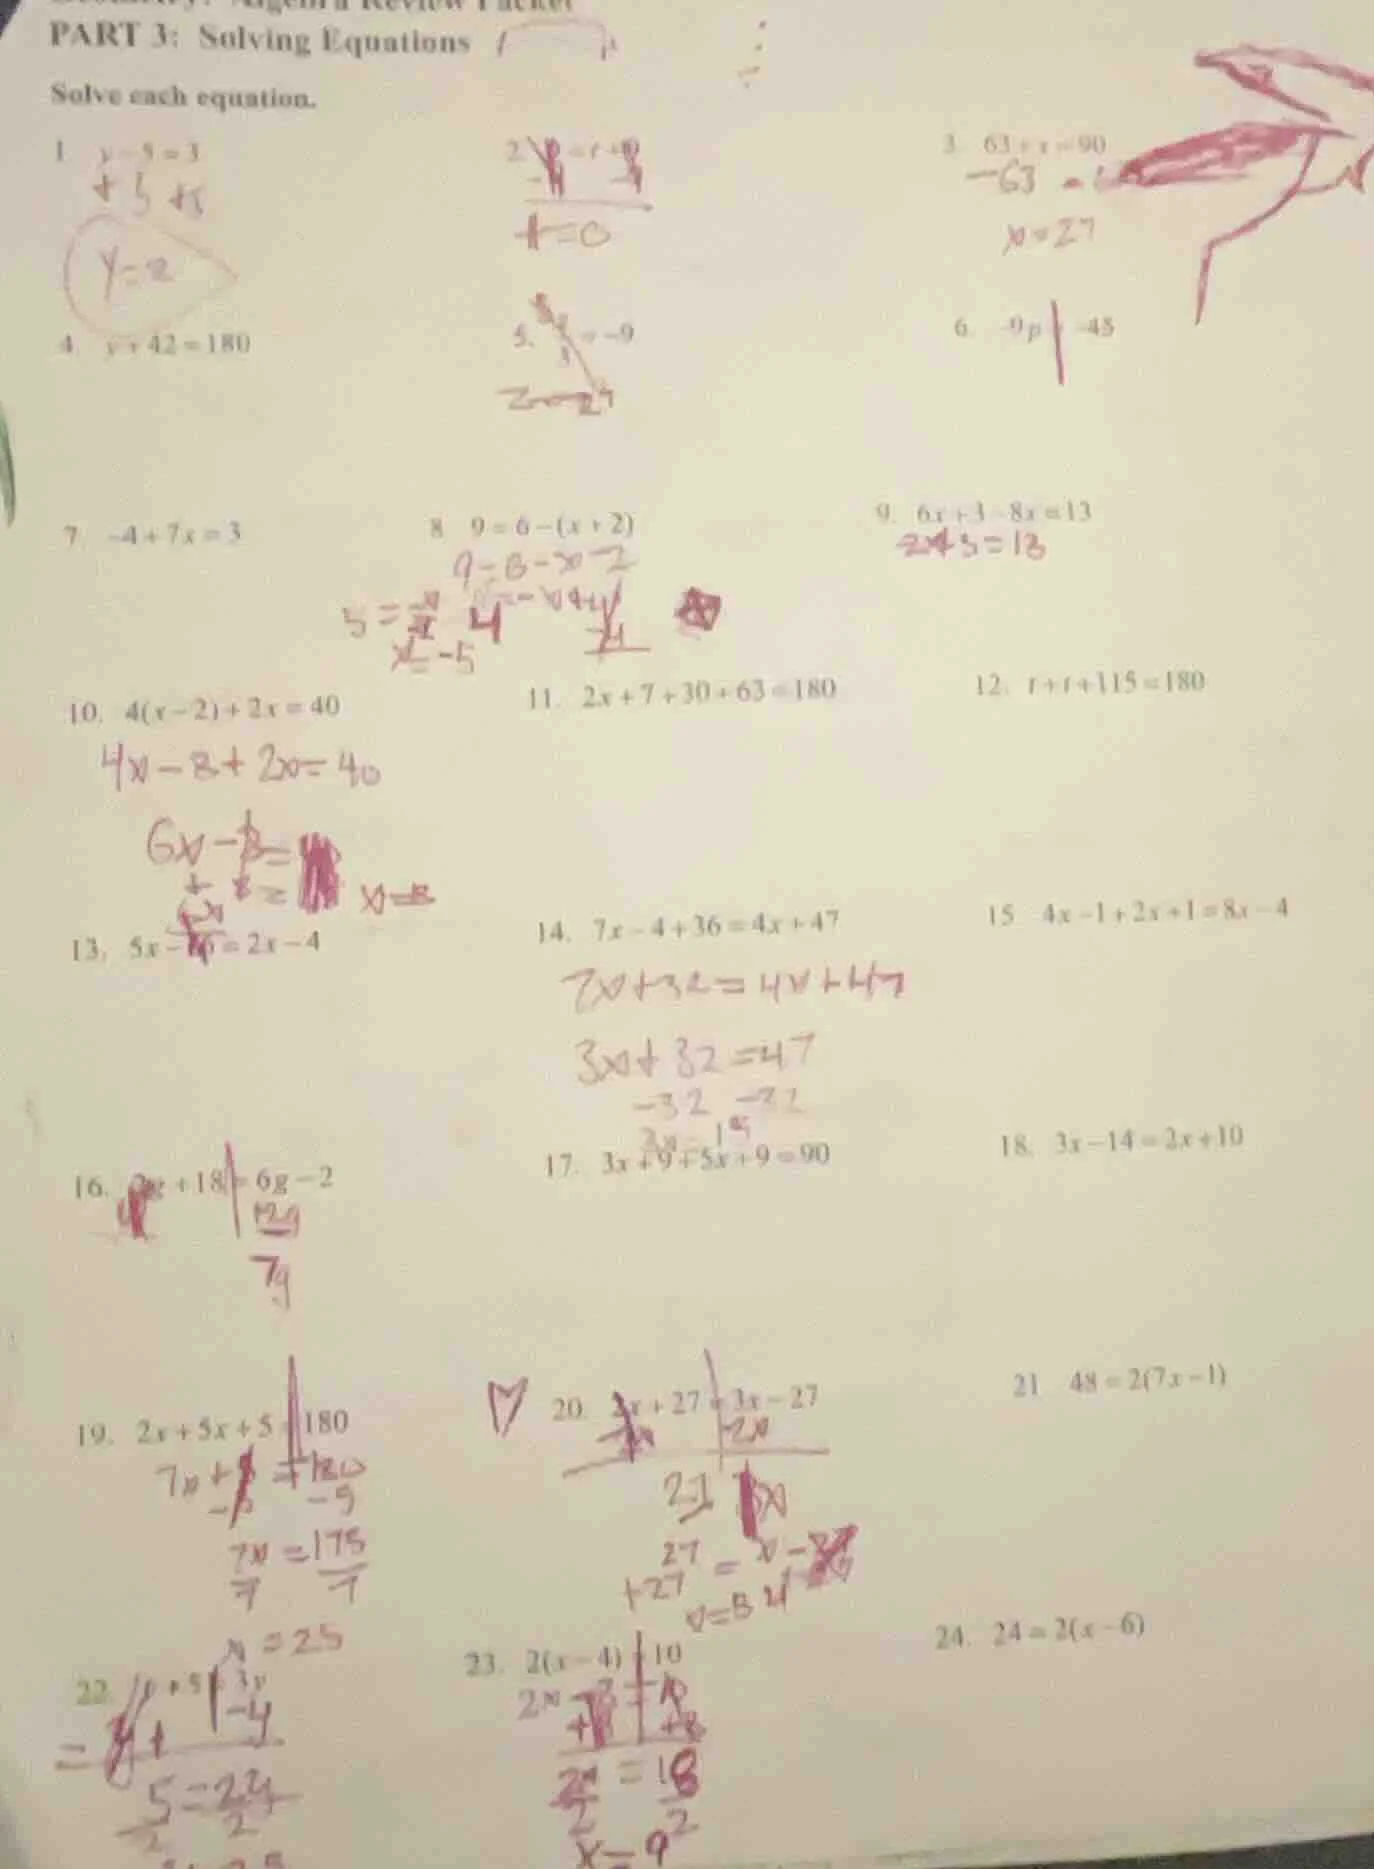 PART 3: Solving Equations
Solve each equation.
1 y - 5 = 3
+ 5 +5
y = 2
2
t = 0
3. 63 + x = 90
-63
x = 27
4. y + 42 = 180
5. = -9
27
6. -9p -45
7. -4 + 7x = 3
8 9 = 6 - (x + 2)
9 = 6 - x - 2
4
5 =
x = -5
9. 6x + 3 - 8x = 13
2x + 3 = 13
10. 4(x - 2) + 2x = 40
4x - 8 + 2x = 40
6x - 8 =
+ 8 =
x = 8
11. 2x + 7 + 30 + 63 = 180
12. t + t + 115 = 180
13. 5x - 16 = 2x - 4
14. 7x - 4 + 36 = 4x + 47
7x + 32 = 4x + 47
3x + 32 = 47
-32 -32
3x = 15
15 4x - 1 + 2x + 1 = 8x - 4
16. + 18 = 6g - 2
+2g
7g
17. 3x + 9 + 5x + 9 = 90
18. 3x - 14 = 2x + 10
19. 2x + 5x + 5 = 180
7x + 5 = 180
-5 -5
7x = 175
7 7
x = 25
20. 2x + 27 = 3x - 27
-2x -2x
27 x
27 = x - 27
+27
x = 54
21 48 = 2(7x - 1)
22. y + 5 = 3y
-y
5 = 2y
2 2
23. 2(x - 4) = 10
2x - 8 = 10
+8 +8
2x = 18
2 2
x = 9
24. 24 = 2(x - 6)